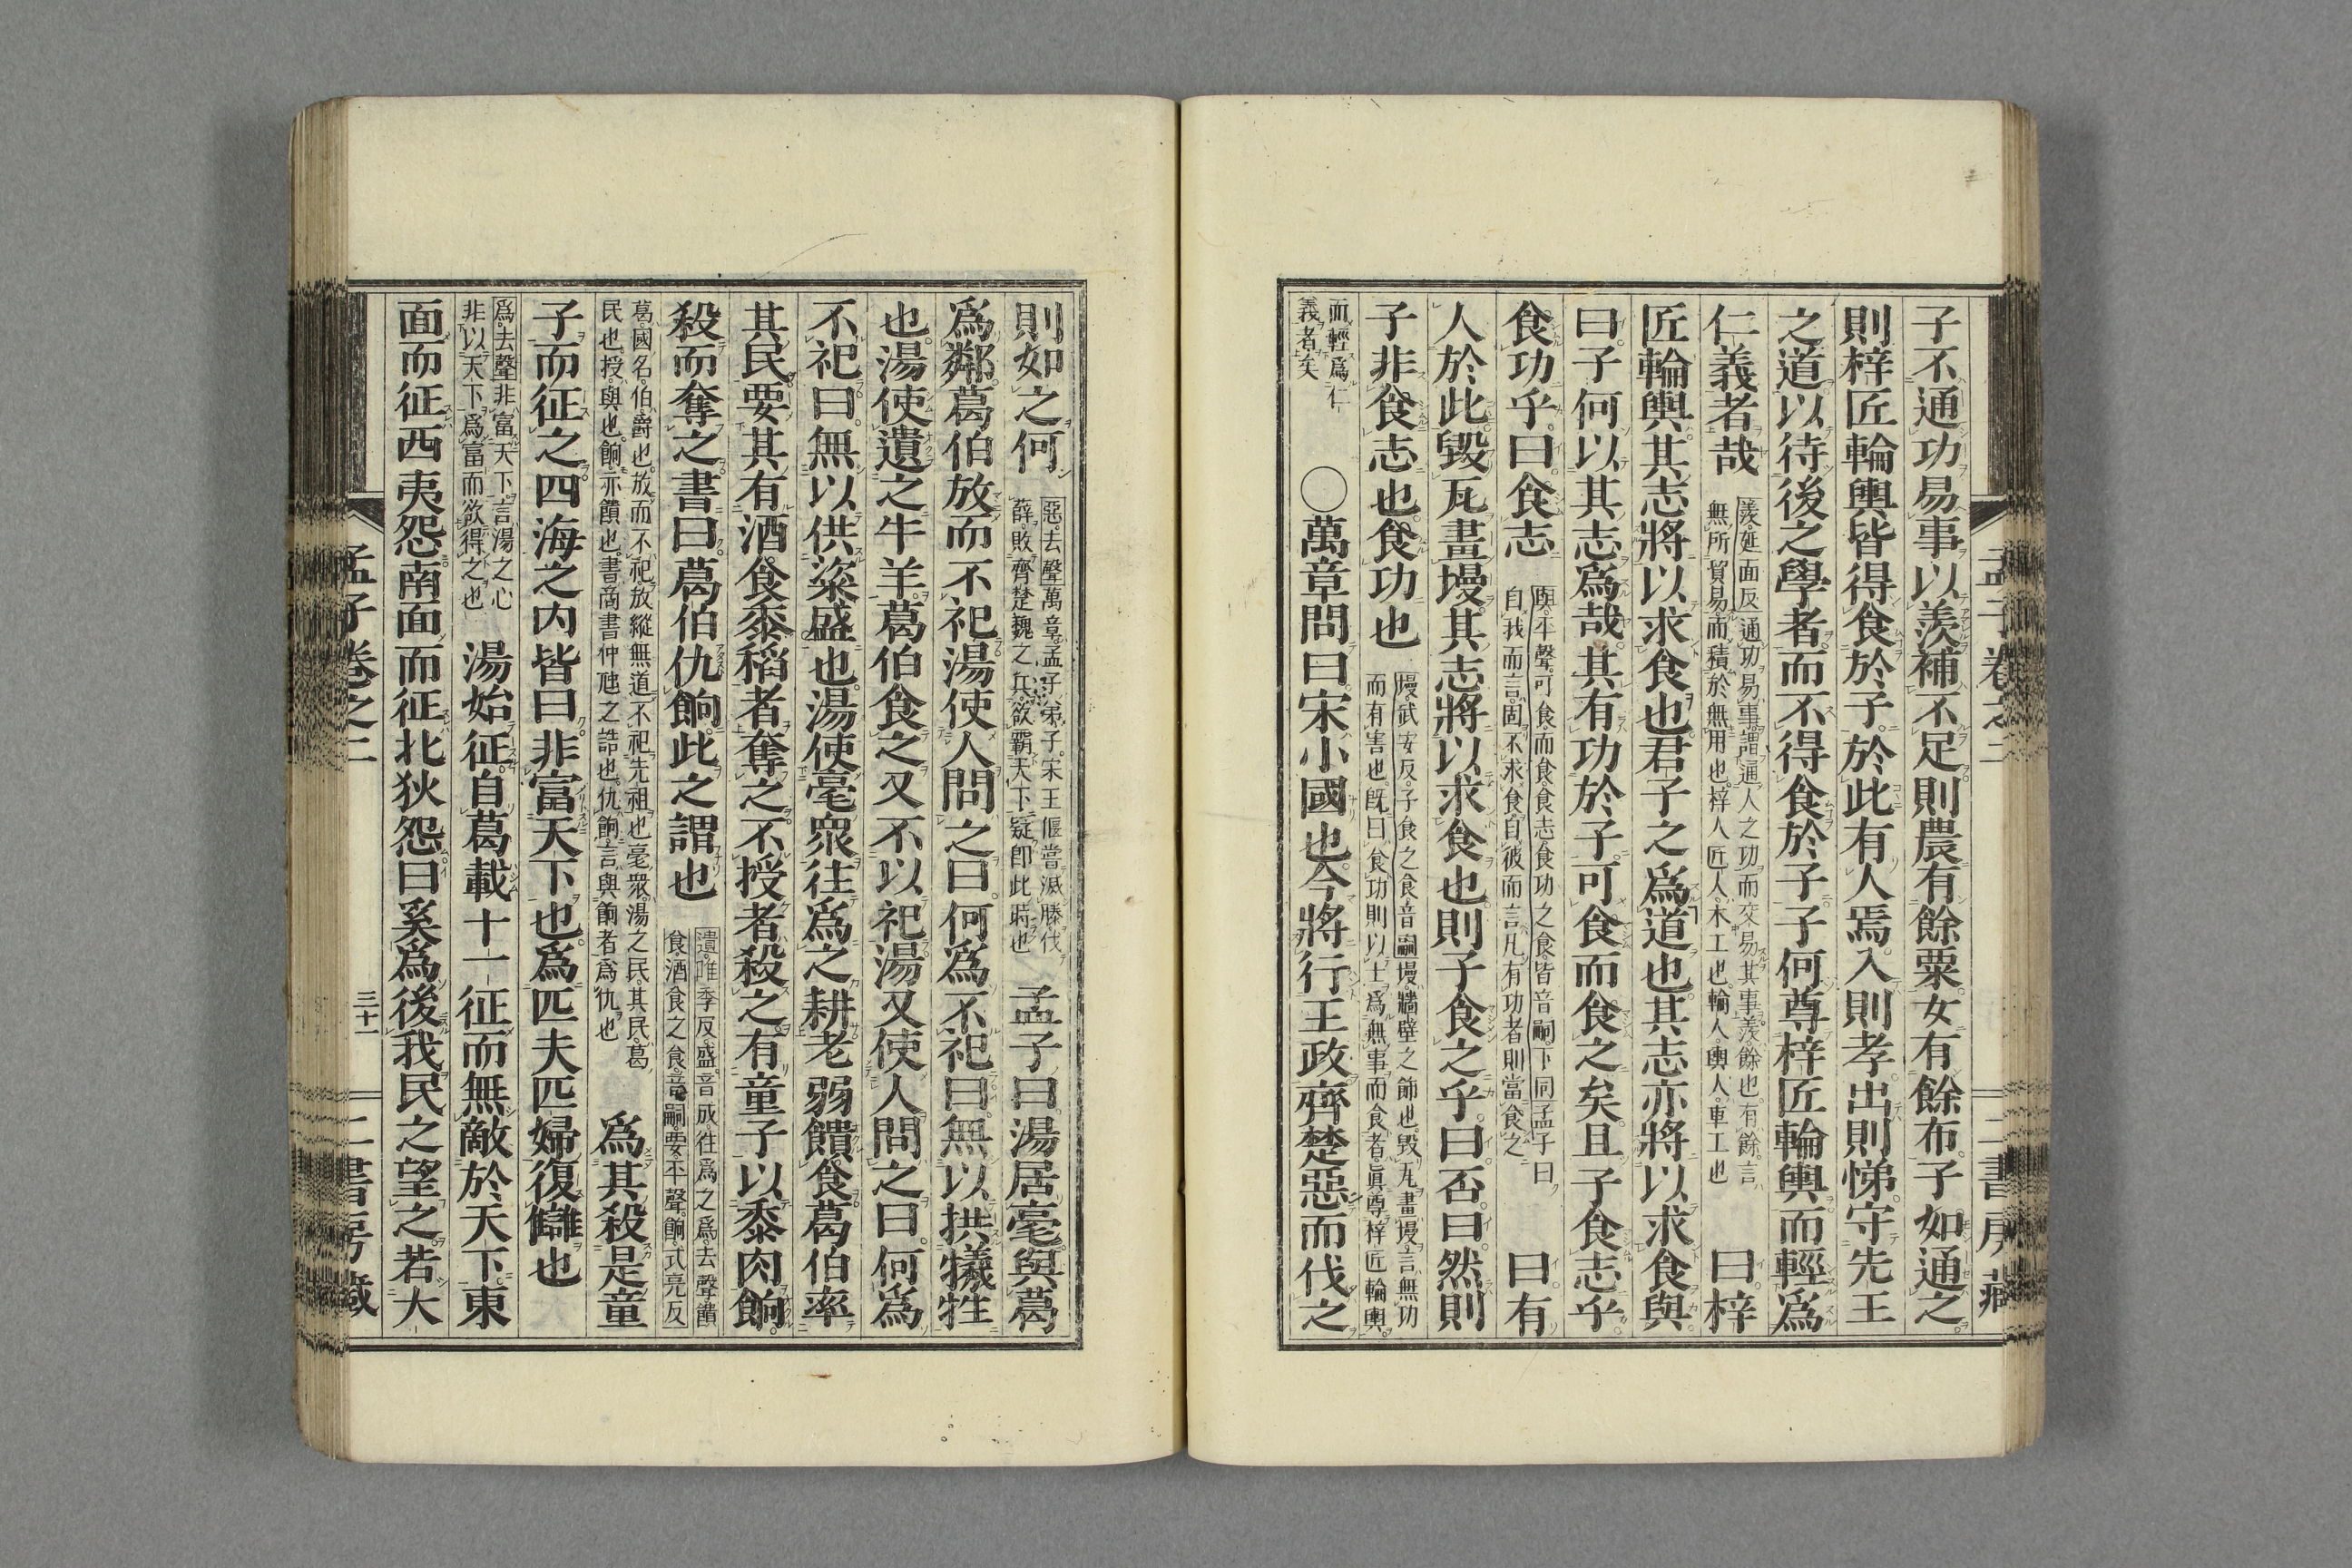 孟子卷之二
二書房藏
子不通功易事以羨補不足則農有餘粟女有餘布子如通之
則梓匠輪輿皆得食於子於此有人焉入則孝出則悌守先王
之道以待後之學者而不得食於子子何尊梓匠輪輿而輕爲
仁義者哉
羨延面反通功易事謂通人之功而交易其事羨餘也有餘言
無所貿易而積於無用也梓人匠人木工也輪人輿人車工也
曰梓
匠輪輿其志將以求食也君子之爲道也其志亦將以求食與
曰子何以其志爲哉其有功於子可食而食之矣且子食志乎
食功乎曰食志
與平聲可食而食食志食功之食皆音嗣下同孟子曰
自我而言固不求食自彼而言凡有功者則當食之
曰有
人於此毀瓦畫墁其志將以求食也則子食之乎曰否曰然則
子非食志也食功也
墁武安反子食之食音嗣墁牆壁之飾也毀瓦畫墁言無功
而有害也既曰食功則以士爲無事而食者眞尊梓匠輪輿
而輕爲仁
義者矣
○萬章問曰宋小國也今將行王政齊楚惡而伐之
則如之何
惡去聲萬章孟子弟子宋王偃嘗滅滕伐
薛敗齊楚魏之兵欲霸天下疑卽此時也
孟子曰湯居亳與葛
爲鄰葛伯放而不祀湯使人問之曰何爲不祀曰無以供犧牲
也湯使遺之牛羊葛伯食之又不以祀湯又使人問之曰何爲
不祀曰無以供粢盛也湯使亳眾往爲之耕老弱饋食葛伯率
其民要其有酒食黍稻者奪之不授者殺之有童子以黍肉餉
殺而奪之書曰葛伯仇餉此之謂也
遺唯季反盛音成往爲之爲去聲饋
食酒食之食音嗣要平聲餉式亮反
葛國名伯爵也放而不祀放縱無道不祀先祖也亳眾湯之民其民葛
民也授與也餉亦饋也書商書仲虺之誥也仇餉言與餉者爲仇也
爲其殺是童
子而征之四海之內皆曰非富天下也爲匹夫匹婦復讎也
爲去聲非富天下言湯之心
非以天下爲富而欲得之也
湯始征自葛載十一征而無敵於天下東
面而征西夷怨南面而征北狄怨曰奚爲後我民之望之若大
孟子卷之二
三十一
二書房藏